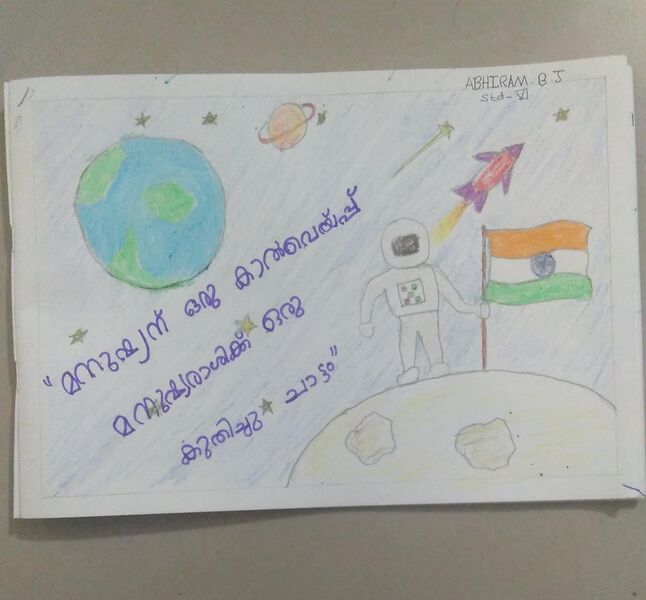 ABHIRAM. B. J
Std - VI
"മനുഷ്യന് ഒരു കാൽവെയ്പ്പ്
മനുഷ്യരാശിക്ക് ഒരു
കുതിച്ചു ചാട്ടം"